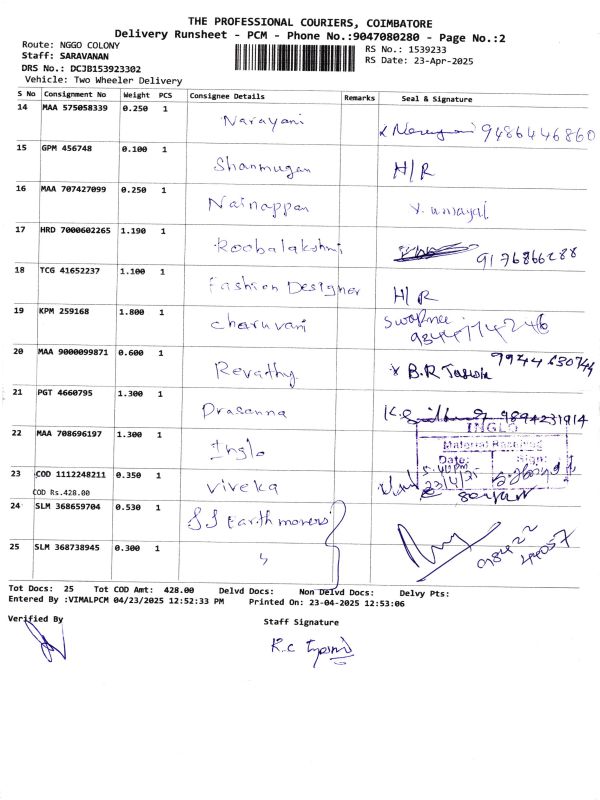 THE PROFESSIONAL COURIERS, COIMBATORE
Delivery Runsheet - PCM - Phone No.:9047080280 - Page No.:2
Route: NGGO COLONY
RS No.: 1539233
Staff: SARAVANAN
RS Date: 23-Apr-2025
DRS No.: DCJB153923302
Vehicle: Two Wheeler Delivery
S No Consignment No Weight PCS Consignee Details Remarks Seal & Signature
14 MAA 575058339 0.250 1 Narayani 9486446860
15 GPM 456748 0.100 1 Shanmugan H/R
16 MAA 707427099 0.250 1 Nainappan V. umayal
17 HRD 7000602265 1.190 1 Roobalakshmi 9176866288
18 TCG 41652237 1.100 1 Fashion Designer H/R
19 KPM 259168 1.800 1 charuvani
20 MAA 9000099871 0.600 1 Revathy B.R
21 PGT 4660795 1.300 1 Prasanna 9894231914
22 MAA 708696197 1.300 1 Inglo
INGLO
Material Received
Date: Sign:
5:40pm
23/4/25
23 COD 1112248211 0.350 1 viveka
COD Rs.428.00
24 SLM 368659704 0.530 1 SS Earth movers
25 SLM 368738945 0.300 1 "
98422
44057
Tot Docs: 25 Tot COD Amt: 428.00 Delvd Docs: Non Delvd Docs: Delvy Pts:
Entered By :VIMALPCM 04/23/2025 12:52:33 PM Printed On: 23-04-2025 12:53:06
Verified By Staff Signature
K.C